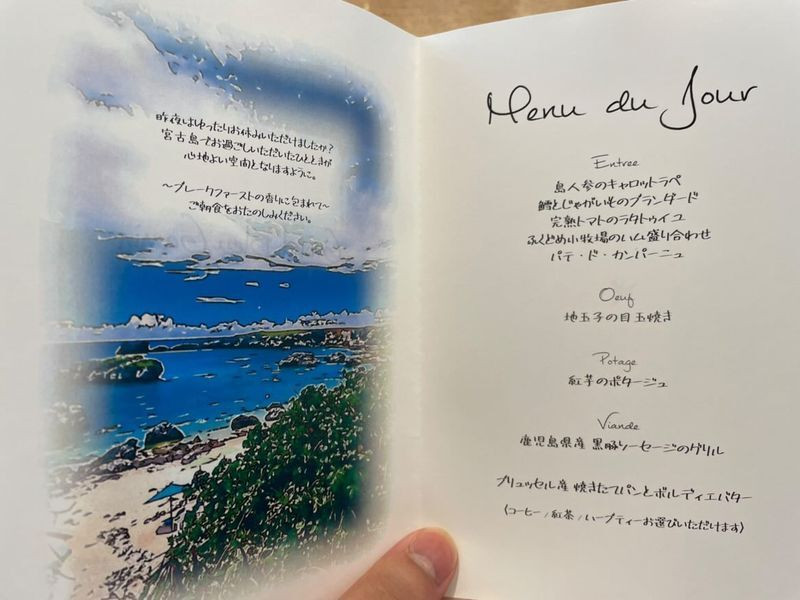 昨夜はゆったりお休みいただけましたか？
宮古島でお過ごしいただいたひとときが
心地よい空間となりますように。
～ブレークファーストの香りに包まれて～
ご朝食をおたのしみください。
Menu du Jour
Entree
島人参のキャロットラペ
鱈とじゃがいものブランダード
完熟トマトのラタトゥイユ
ふくどめ小牧場のハム盛り合わせ
パテ・ド・カンパーニュ
Oeuf
地玉子の目玉焼き
Potage
紅芋のポタージュ
Viande
鹿児島県産 黒豚ソーセージのグリル
ブリュッセル産 焼きたてパンとボルディエバター
(コーヒー / 紅茶 / ハーブティーお選びいただけます)